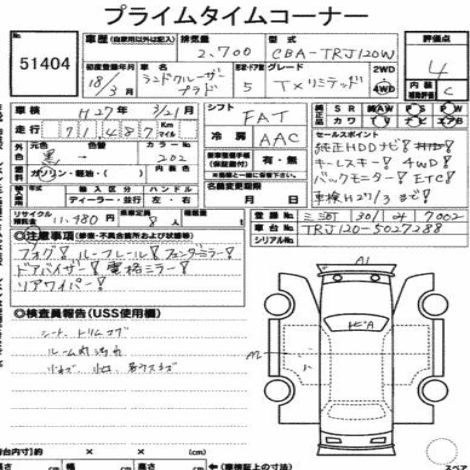 プライムタイムコーナー
51404
車歴 (自家用以外は記入) 排気量 2,700 型式 CBA-TRJ120W 評価点 4
初度登録年月 18/3月 車名 ランドクルーザープラド ドア形状 5 グレード TXリミテッド 2WD 4WD 内装 補助評価 C
車検 H27年 3/21月 シフト FAT 純正 SR AW PS PW
走行 71487 Km マイル 冷房 AAC カワ TV
外色 元色 黒 色替 カラーNo. 202 セールスポイント
純正HDDナビ!
燃料 ガソリン・軽油・( ) 有・無 キーレスキー! 4WD!
輸入区分 ハンドル バックモニター! ETC!
ディーラー・並行 左・右 名義変更期限 月 日 車検H27/3まで!
リサイクル料金 11,480円 乗車定員 8人 登録No. 三河 301 7002
車台No. TRJ120-5027288
シリアルNo.
◎注意事項 (修復・不具合箇所および状態等)
フォグ! ルーフレール! フェンダーミラー!
ドアバイザー! 電格ミラー!
リアワイパー!
◎検査員報告 (USS使用欄)
シート、トリムコゲ
A1
A2
高さ (cm) × × (車検証上の寸法)
長さ (cm) 幅 (cm) 高さ (cm)